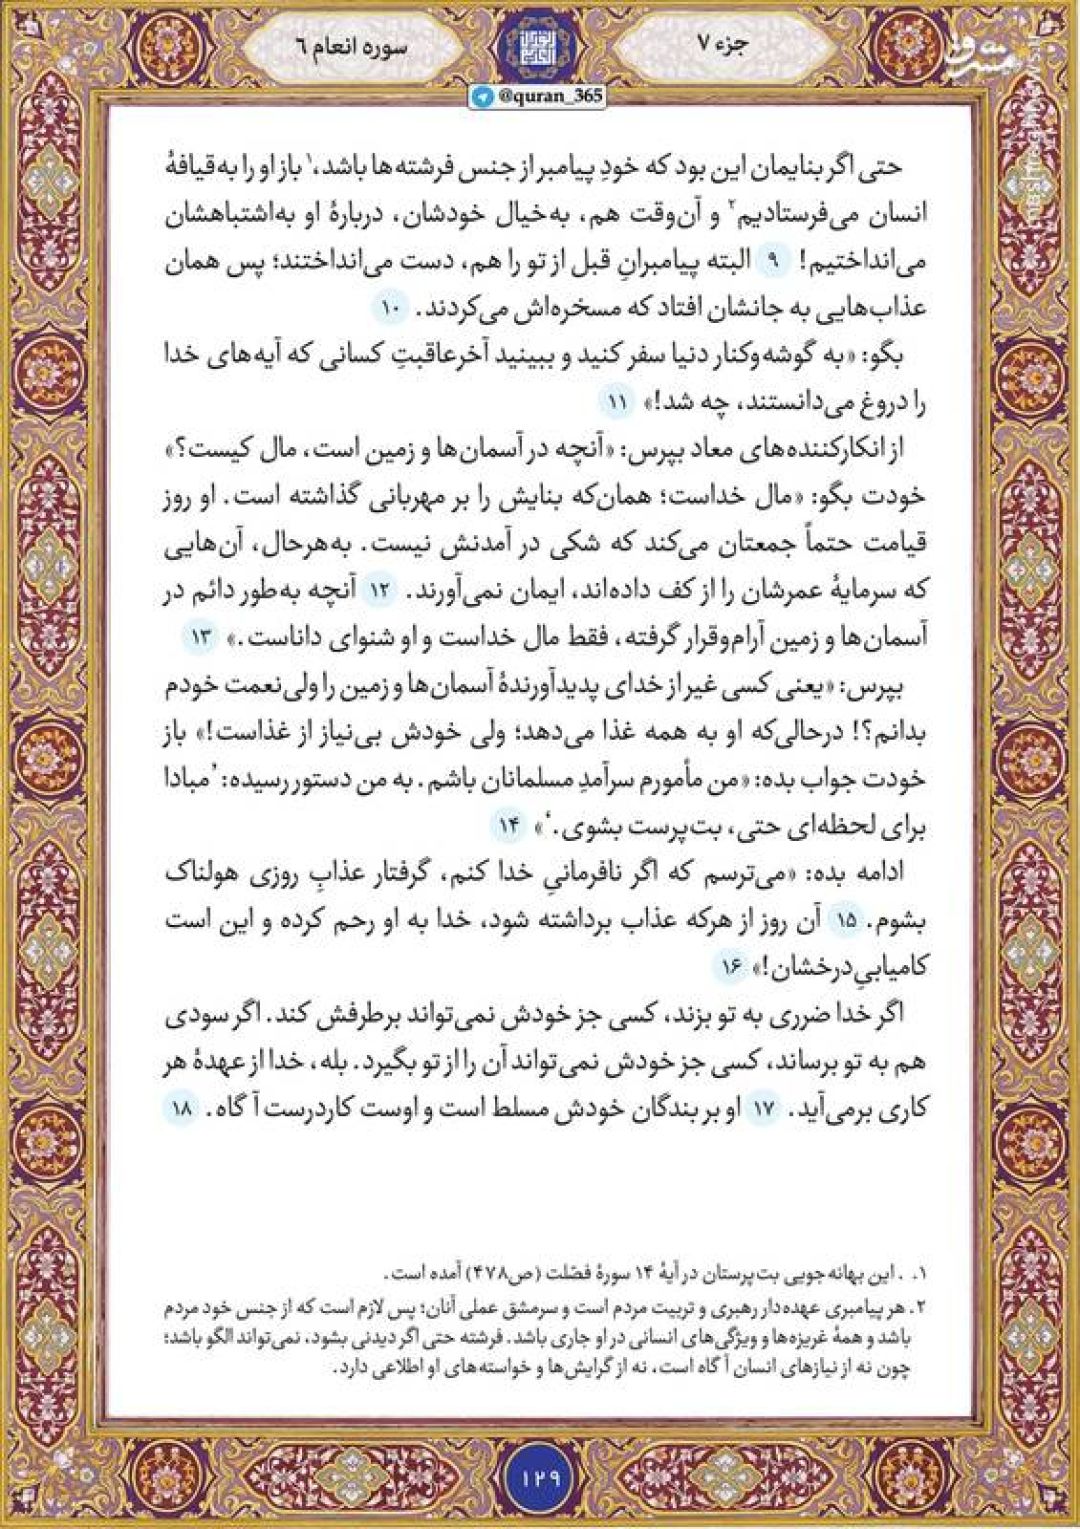 جزء ۷
سوره انعام ۶
@quran_365
حتی اگر بنایمان این بود که خودِ پیامبر از جنس فرشته‌ها باشد،۱ باز او را به قیافهٔ
انسان می‌فرستادیم۲ و آن‌وقت هم، به‌خیال خودشان، دربارهٔ او به‌اشتباهشان
می‌انداختیم! ۹ البته پیامبرانِ قبل از تو را هم، دست می‌انداختند؛ پس همان
عذاب‌هایی به جانشان افتاد که مسخره‌اش می‌کردند. ۱۰
بگو: «به گوشه‌وکنار دنیا سفر کنید و ببینید آخرعاقبتِ کسانی که آیه‌های خدا
را دروغ می‌دانستند، چه شد!» ۱۱
از انکارکننده‌های معاد بپرس: «آنچه در آسمان‌ها و زمین است، مال کیست؟»
خودت بگو: «مال خداست؛ همان‌که بنایش را بر مهربانی گذاشته است. او روز
قیامت حتماً جمعتان می‌کند که شکی در آمدنش نیست. به‌هرحال، آن‌هایی
که سرمایهٔ عمرشان را از کف داده‌اند، ایمان نمی‌آورند. ۱۲ آنچه به‌طور دائم در
آسمان‌ها و زمین آرام‌وقرار گرفته، فقط مال خداست و او شنوای داناست.» ۱۳
بپرس: «یعنی کسی غیر از خدای پدیدآورندهٔ آسمان‌ها و زمین را ولی‌نعمت خودم
بدانم؟! درحالی‌که او به همه غذا می‌دهد؛ ولی خودش بی‌نیاز از غذاست!» باز
خودت جواب بده: «من مأمورم سرآمدِ مسلمانان باشم. به من دستور رسیده: ’مبادا
برای لحظه‌ای حتی، بت‌پرست بشوی.‘» ۱۴
ادامه بده: «می‌ترسم که اگر نافرمانیِ خدا کنم، گرفتار عذابِ روزی هولناک
بشوم. ۱۵ آن روز از هرکه عذاب برداشته شود، خدا به او رحم کرده و این است
کامیابیِ درخشان!» ۱۶
اگر خدا ضرری به تو بزند، کسی جز خودش نمی‌تواند برطرفش کند. اگر سودی
هم به تو برساند، کسی جز خودش نمی‌تواند آن را از تو بگیرد. بله، خدا از عهدهٔ هر
کاری برمی‌آید. ۱۷ او بر بندگان خودش مسلط است و اوست کاردرست آگاه. ۱۸
۱. . این بهانه‌جویی بت‌پرستان در آیهٔ ۱۴ سورهٔ فصّلت (ص۴۷۸) آمده است.
۲. هر پیامبری عهده‌دار رهبری و تربیت مردم است و سرمشق عملی آنان؛ پس لازم است که از جنس خود مردم
باشد و همهٔ غریزه‌ها و ویژگی‌های انسانی در او جاری باشد. فرشته حتی اگر دیدنی بشود، نمی‌تواند الگو باشد؛
چون نه از نیازهای انسان آگاه است، نه از گرایش‌ها و خواسته‌های او اطلاعی دارد.
۱۲۹